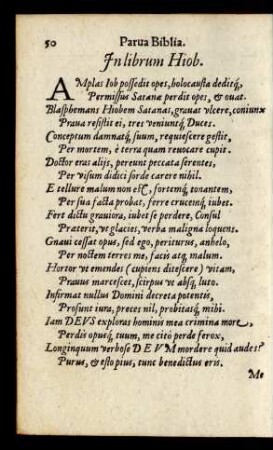 50 Parua Biblia.
In librum Hiob.
AMplas Iob possedit opes, holocausta deditq́,
Permissus Satanæ perdit opes, & ouat.
Blasphemans Hiobem Satanas, grauat vlcere, coniunx
Praua resistit ei, tres veniuntq́ Duces.
Conceptum damnatq́ suum, requiescere gestit,
Per mortem, è terra quam reuocare cupit.
Doctor eras alijs, pereunt peccata serentes,
Per visum didici sorde carere nihil.
E tellure malum non est, fortemq́ tonantem,
Per sua facta probat, ferre crucemq́ iubet.
Fert dictu grauiora, iubet se perdere, Consul
Præterit, vt glacies, verba maligna loquens.
Gnaui cessat opus, sed ego, periturus, anhelo,
Per noctem terres me, facis atq́ malum.
Hortor vt emendes (cupiens ditescere) vitam,
Prauus marcescet, scirpus vt absq́ luto.
Infirmat nullus Domini decreta potentis,
Prosunt iura, preces nil, probitasq́ mibi.
Iam DEVS exploras hominis mea crimina more,
Perdis opusq́ tuum, me citò perde ferox,
Longinquum verbose DEVM mordere quid audes?
Purus, & esto pius, tunc benedictus eris.
Me